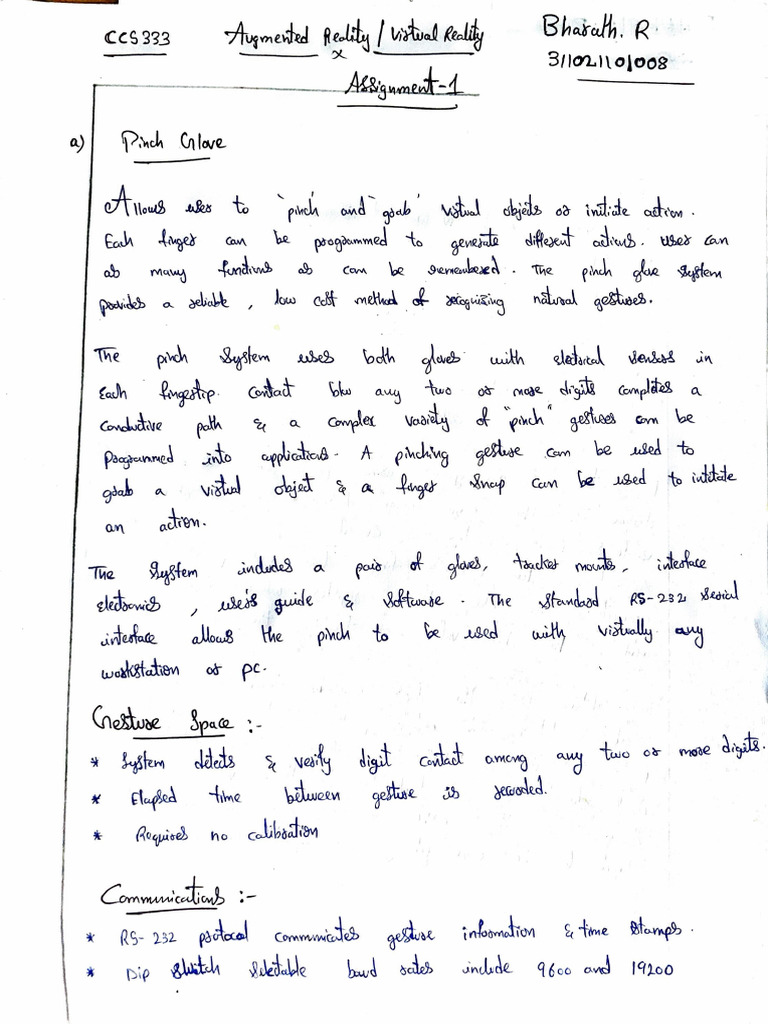 CCS333 Augmented Reality / Virtual Reality Bharath. R
x 311021101008
Assignment-1
a) Pinch Glove
Allows user to `pinch' and `grab' virtual objects or initiate action.
Each finger can be programmed to generate different actions. user can
as many functions as can be remembered. The pinch glove system
provides a reliable, low cost method of recognizing natural gestures.
The pinch system uses both gloves with electrical sensors in
each fingertip. contact btw any two or more digits completes a
conductive path & a complex variety of "pinch" gestures can be
programmed into applications. A pinching gesture can be used to
grab a virtual object & a finger snap can be used to intitate
an action.
The system includes a pair of gloves, tracker mounts, interface
electronics, user's guide & software. The standard RS-232 serial
interface allows the pinch to be used with virtually any
workstation or pc.
Gesture Space :-
* System detects & verify digit contact among any two or more digits.
* Elapsed time between gesture is recorded.
* Requires no calibration
Communications :-
* RS-232 protocol communicates gesture information & time stamps.
* Dip switch selectable baud rates include 9600 and 19200